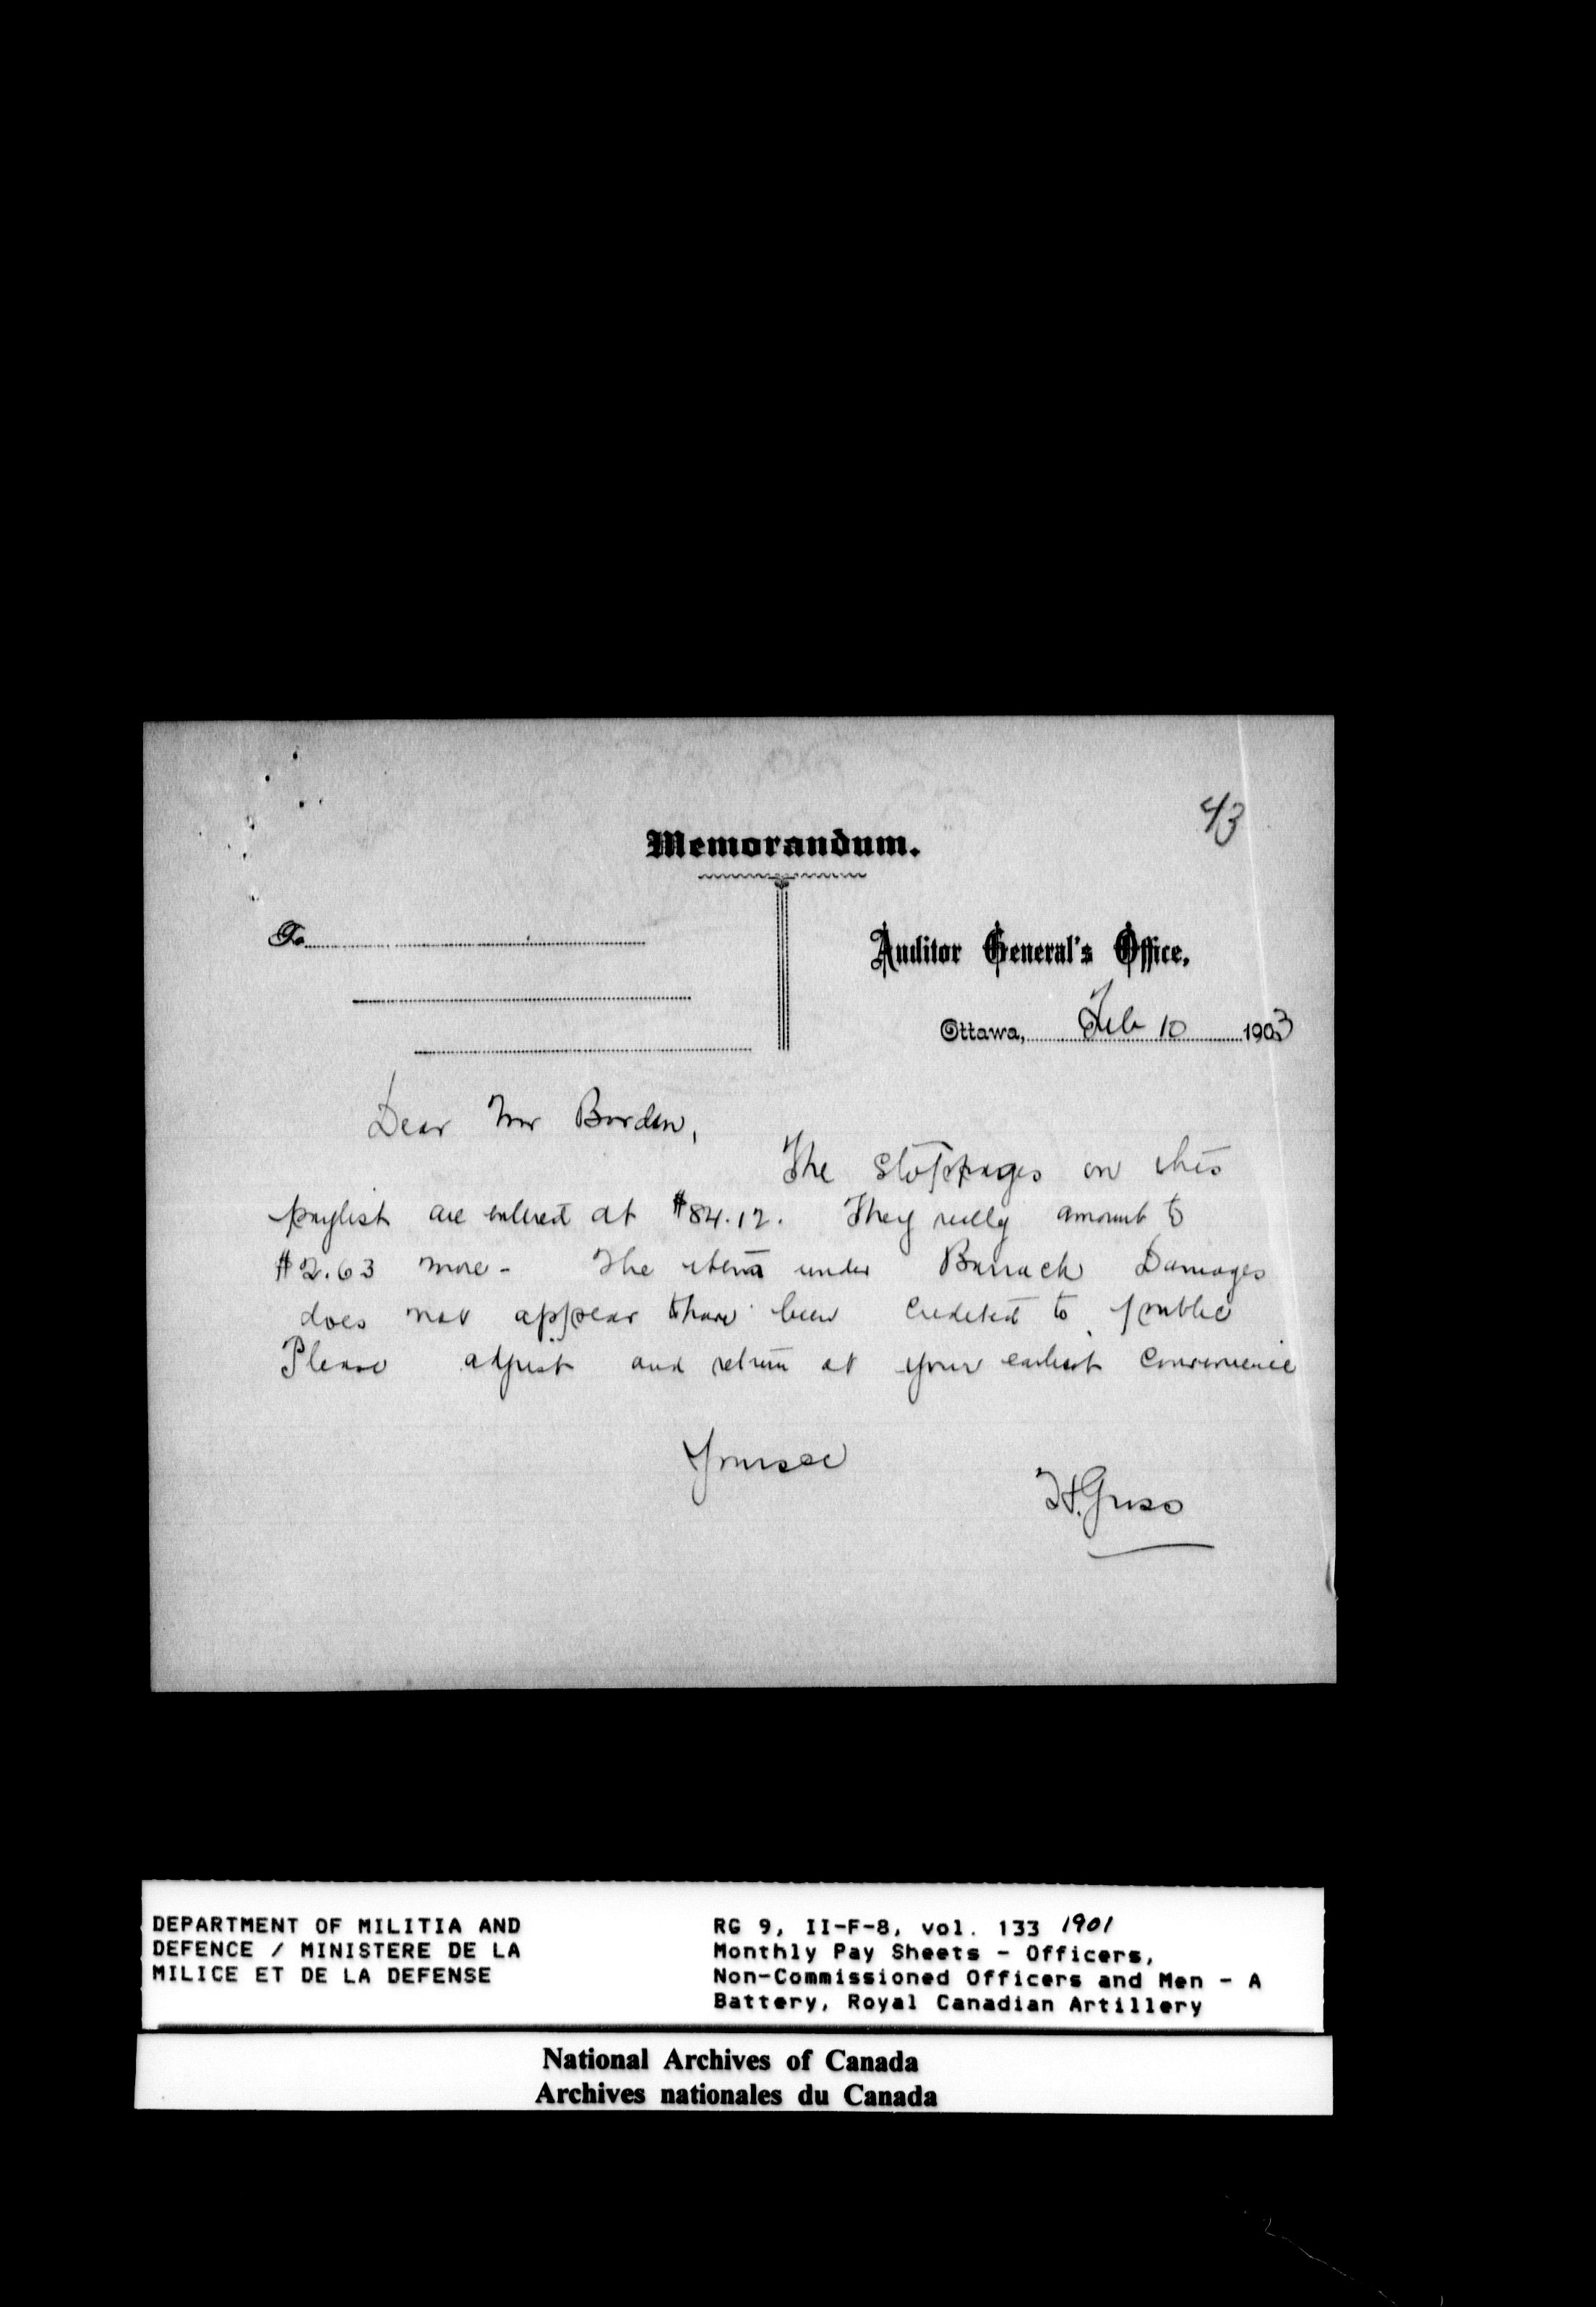 43
Memorandum.
To
Auditor General's Office,
Ottawa, Feb 10 1903
Dear Mr Borden,
The stoppages on this
paylist are entered at $84.12. They really amount to
$2.63 more - The item under Barrack Damages
does not appear to have been credited to public
Please adjust and return at your earliest convenience
Yours
H.
DEPARTMENT OF MILITIA AND
DEFENCE / MINISTERE DE LA
MILICE ET DE LA DEFENSE
RG 9, II-F-8, vol. 133 1901
Monthly Pay Sheets - Officers,
Non-Commissioned Officers and Men - A
Battery, Royal Canadian Artillery
National Archives of Canada
Archives nationales du Canada